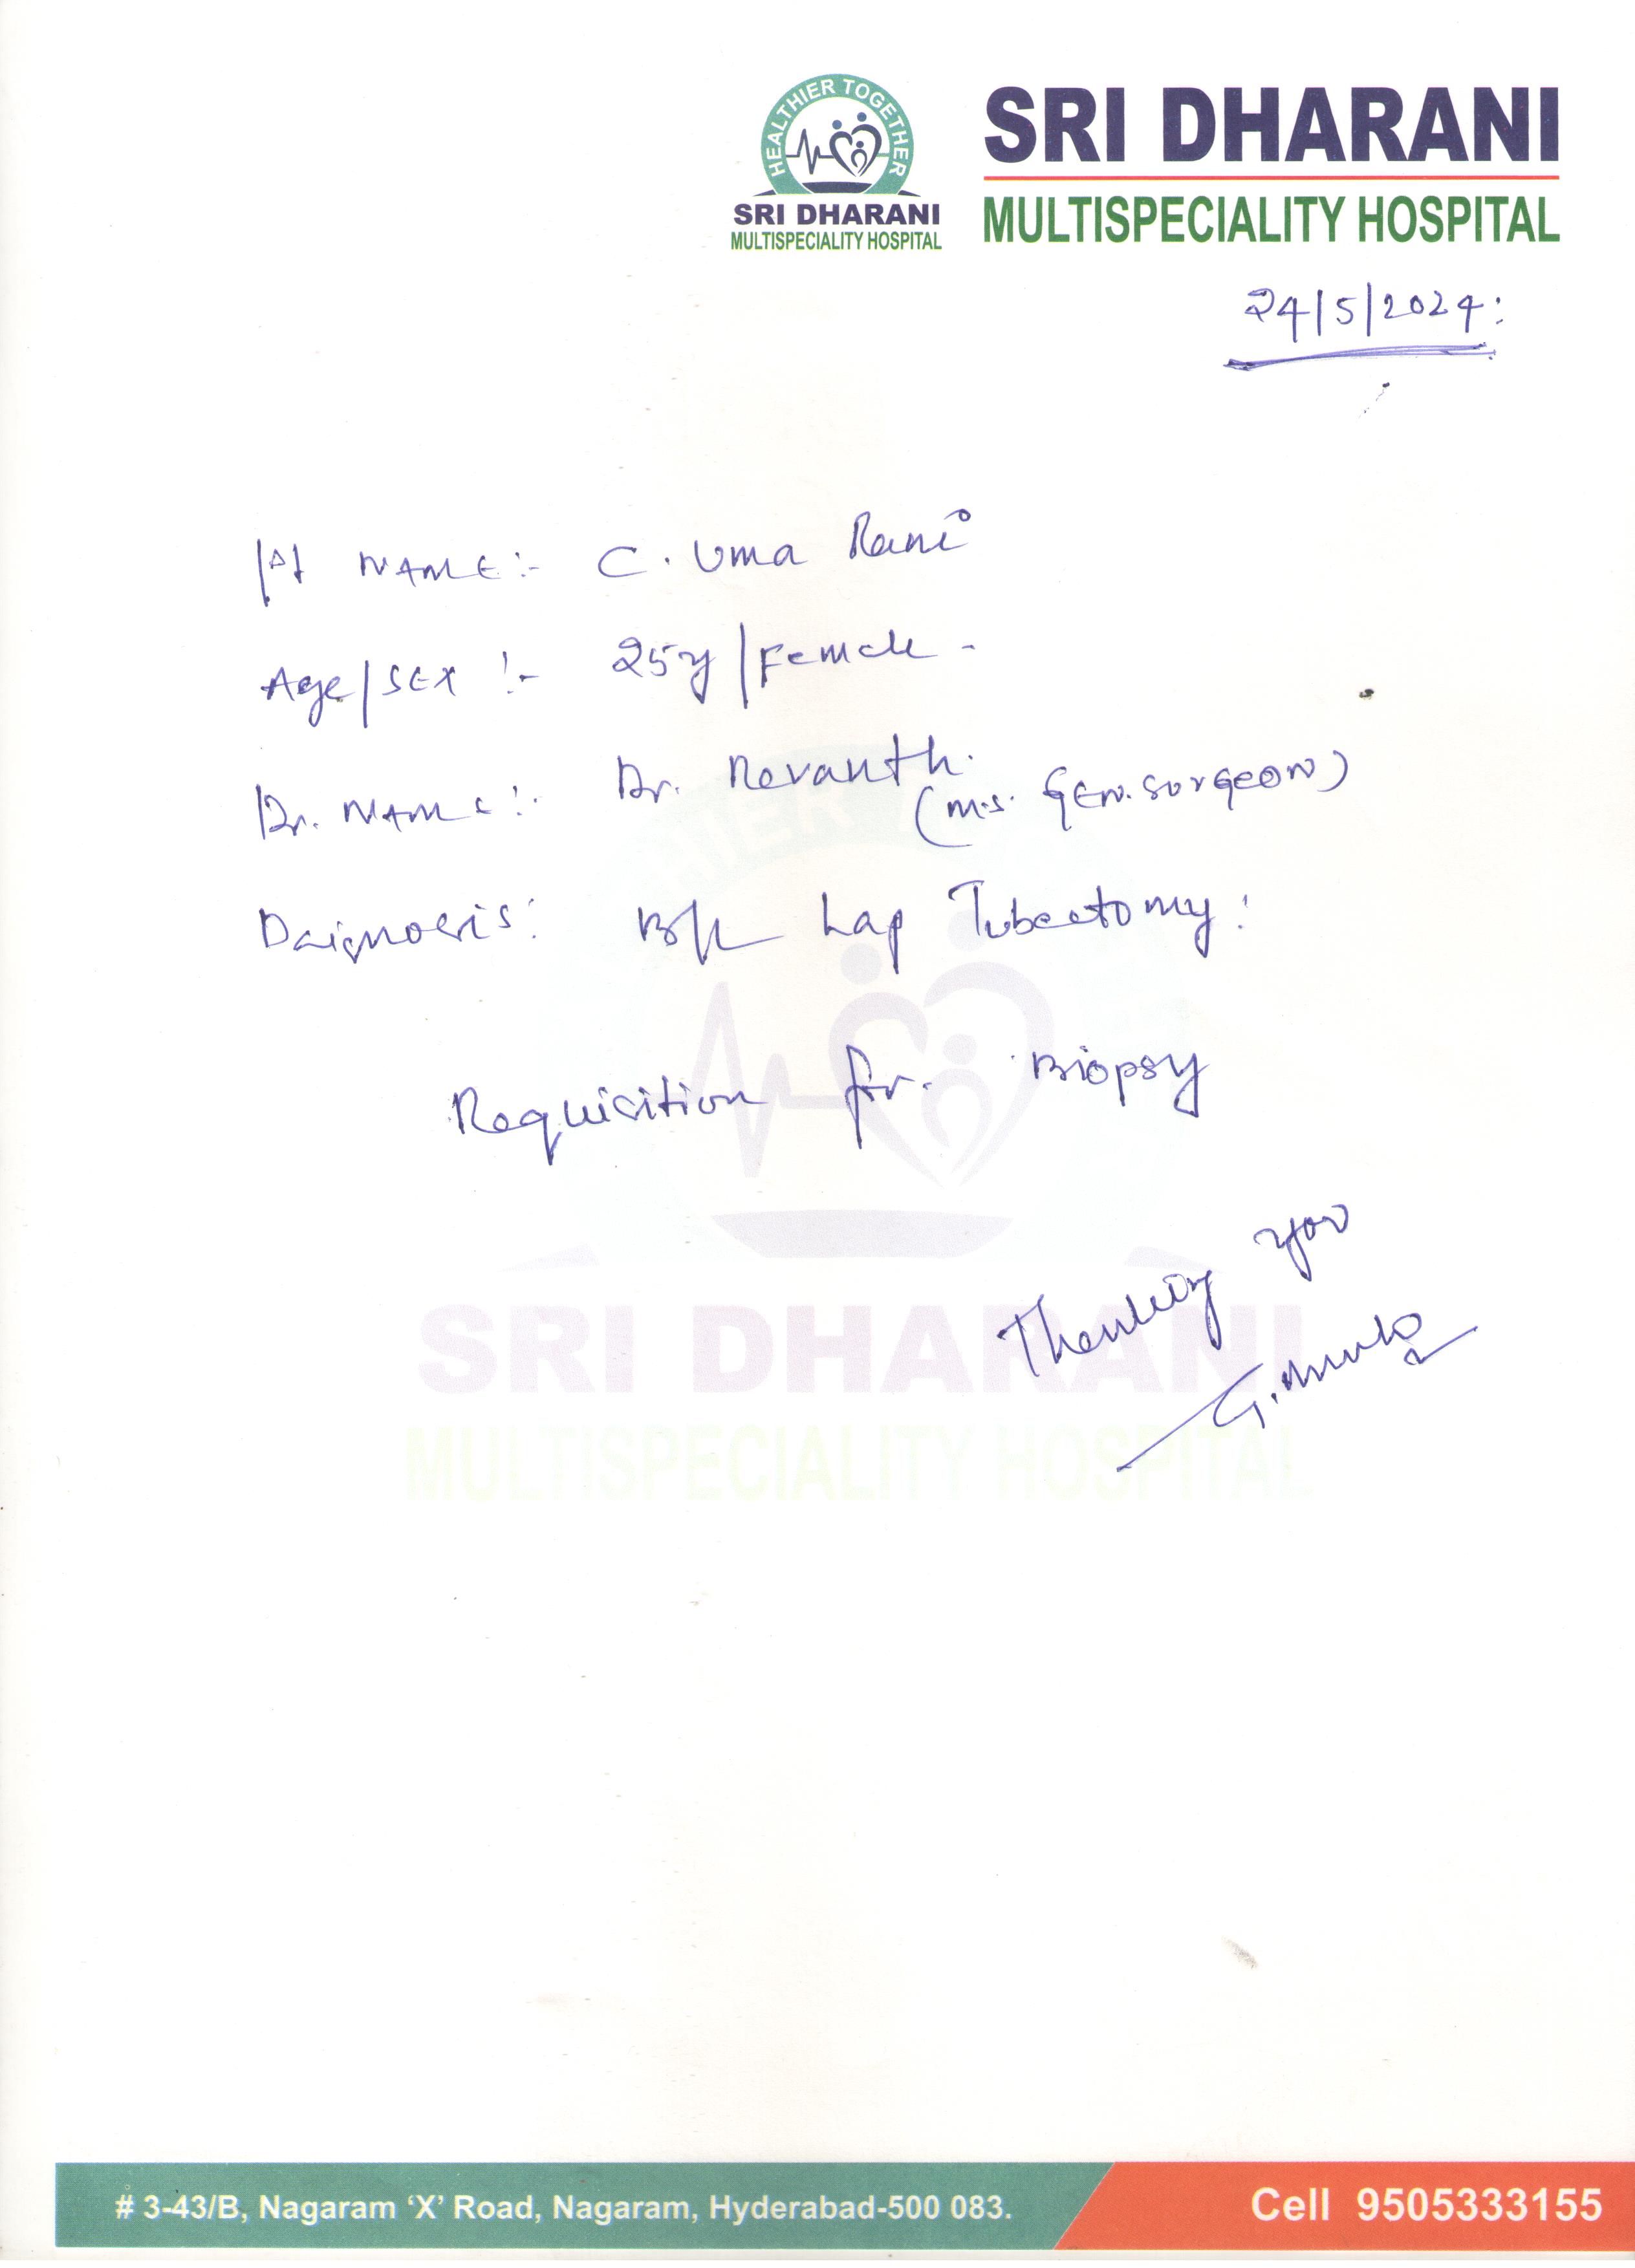 HEALTHIER TOGETHER
SRI DHARANI
MULTISPECIALITY HOSPITAL
SRI DHARANI
MULTISPECIALITY HOSPITAL
24/5/2024:
Pt NAME:- C. Uma Rani
Age/SEX :- 25y/Female -
Dr. NAME:- Dr. Revanth.
(M.S. GEN. Surgeon)
Daignosis: B/L Lap Tubectomy:
Requisition for. Biopsy
Thanking you
SRI DHARANI
MULTISPECIALITY HOSPITAL
# 3-43/B, Nagaram ‘X’ Road, Nagaram, Hyderabad-500 083.
Cell 9505333155